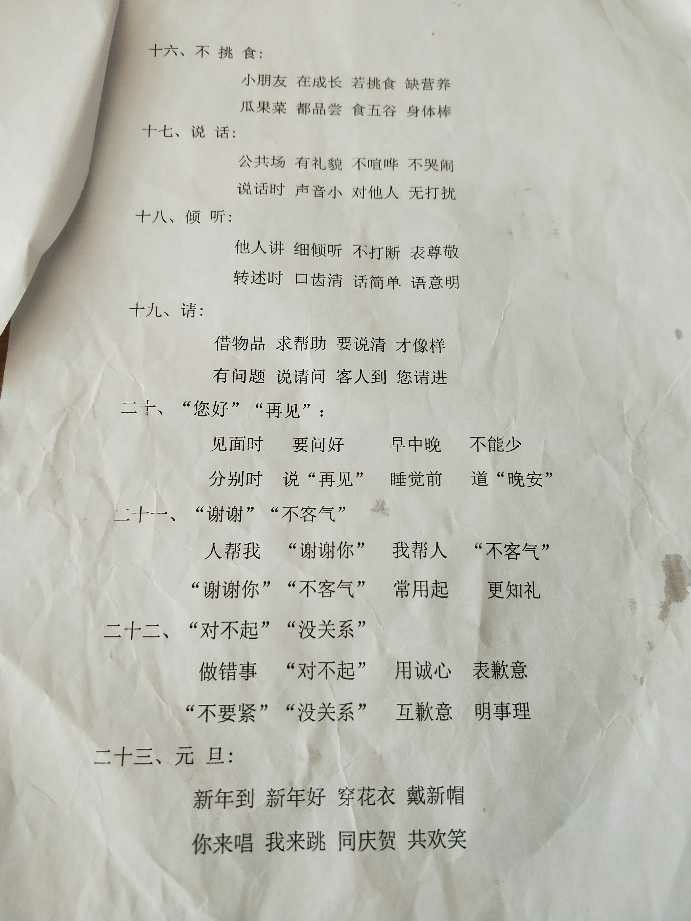 十六、不 挑 食:
小朋友 在成长 若挑食 缺营养
瓜果菜 都品尝 食五谷 身体棒
十七、说 话:
公共场 有礼貌 不喧哗 不哭闹
说话时 声音小 对他人 无打扰
十八、倾 听:
他人讲 细倾听 不打断 表尊敬
转述时 口齿清 话简单 语意明
十九、请:
借物品 求帮助 要说清 才像样
有问题 说请问 客人到 您请进
二十、“您好”“再见”:
见面时 要问好 早中晚 不能少
分别时 说“再见” 睡觉前 道“晚安”
二十一、“谢谢”“不客气”
人帮我 “谢谢你” 我帮人 “不客气”
“谢谢你”“不客气” 常用起 更知礼
二十二、“对不起”“没关系”
做错事 “对不起” 用诚心 表歉意
“不要紧”“没关系” 互歉意 明事理
二十三、元 旦:
新年到 新年好 穿花衣 戴新帽
你来唱 我来跳 同庆贺 共欢笑